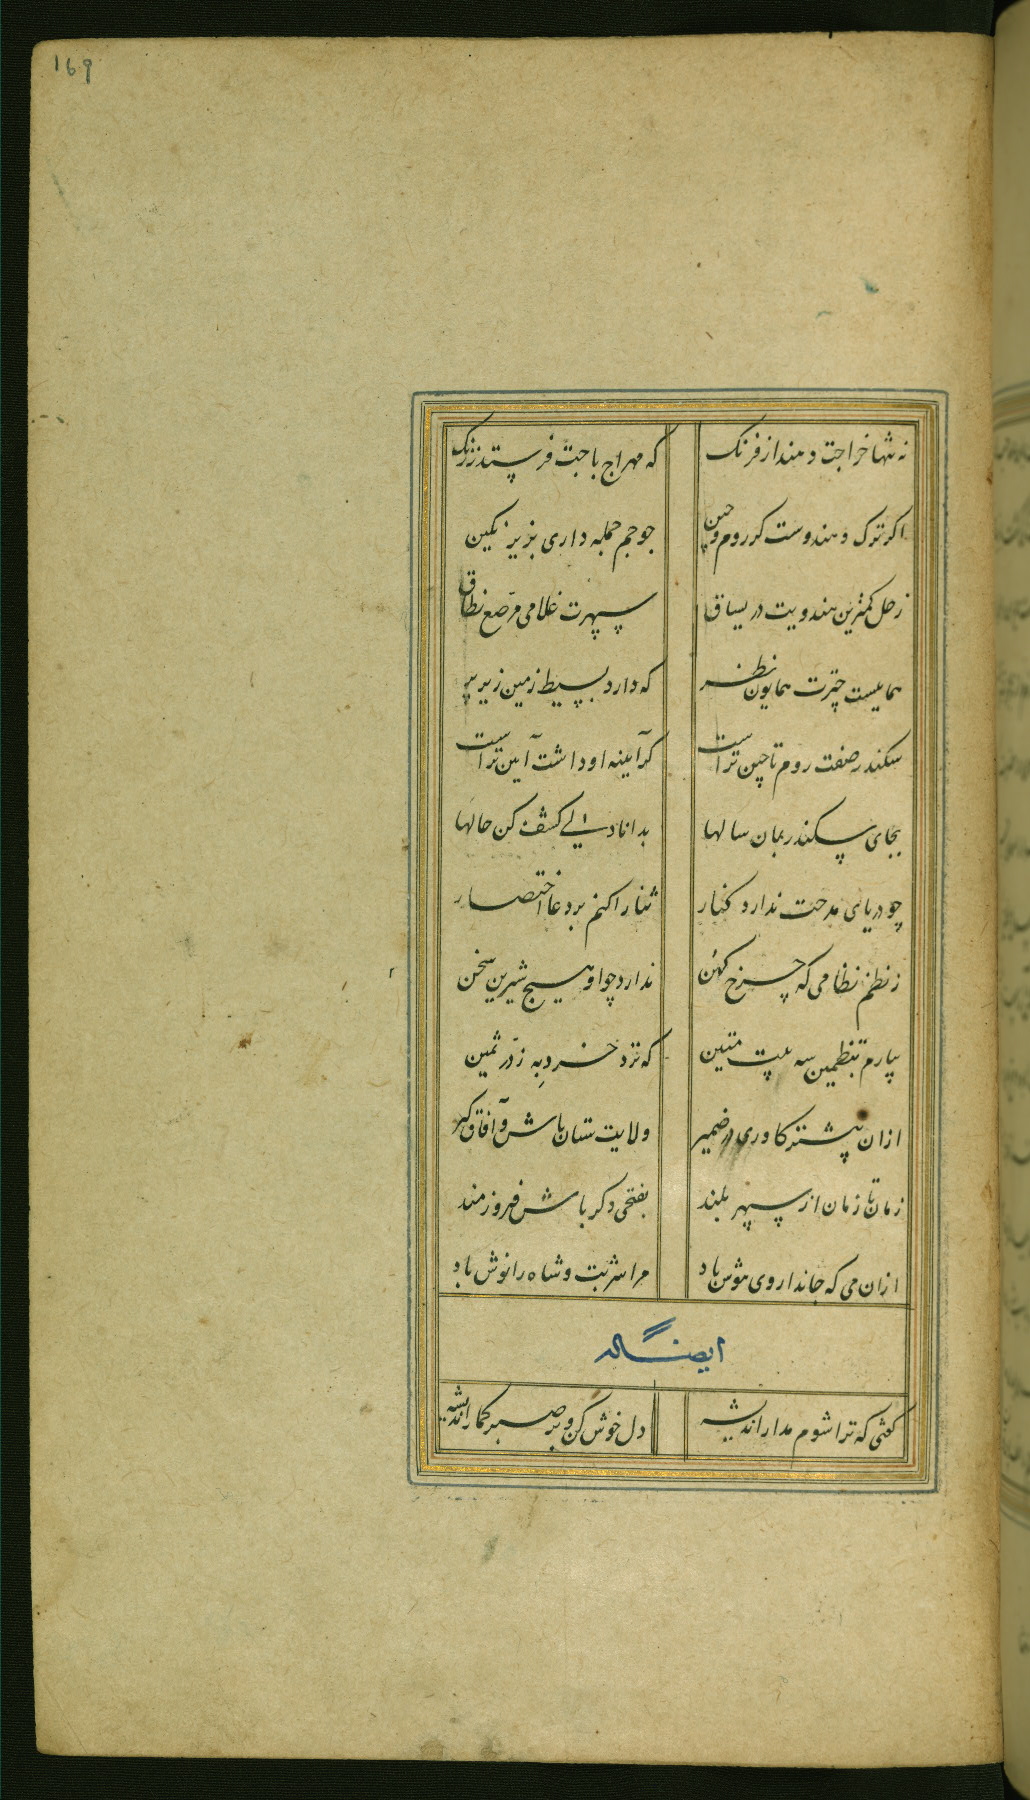 169
نه تنها خراجت دهند از فرنک که مهراج باجت فرستد ز زنک
اکر ترک و هندوست کر روم و چین جو جم جمله داری بزیر نکین
زحل کمترین هندویت در یساق سپهرت غلامی مرصع نطاق
همایست چترت همایون نظر که دارد بسیط زمین زیر پر
سکندر صفت روم تا چین تراست کر آیینه او داشت آیین تراست
بجای سکندر بمان سالها بدانا دلی کشف کن حالها
چو دریای مدحت ندارد کنار ثنا را کنم بر دعا اختصار
ز نظم نظامی که چرخ کهن ندارد چو او هیچ شیرین سخن
بیارم بتضمین سه بیت متین که نزد خرد به ز در ثمین
ازان بیشتر کاوری در ضمیر ولایت ستان باش و آفاق کیر
زمان تا زمان از سپهر بلند بفتحی دکر باش فیروزمند
ازان می که جانداروی هوش باد مرا شربت و شاه را نوش باد
ایضا له
کفتی که ترا شوم مدار اندیشه دل خوش کن و بر صبر کمار اندیشه